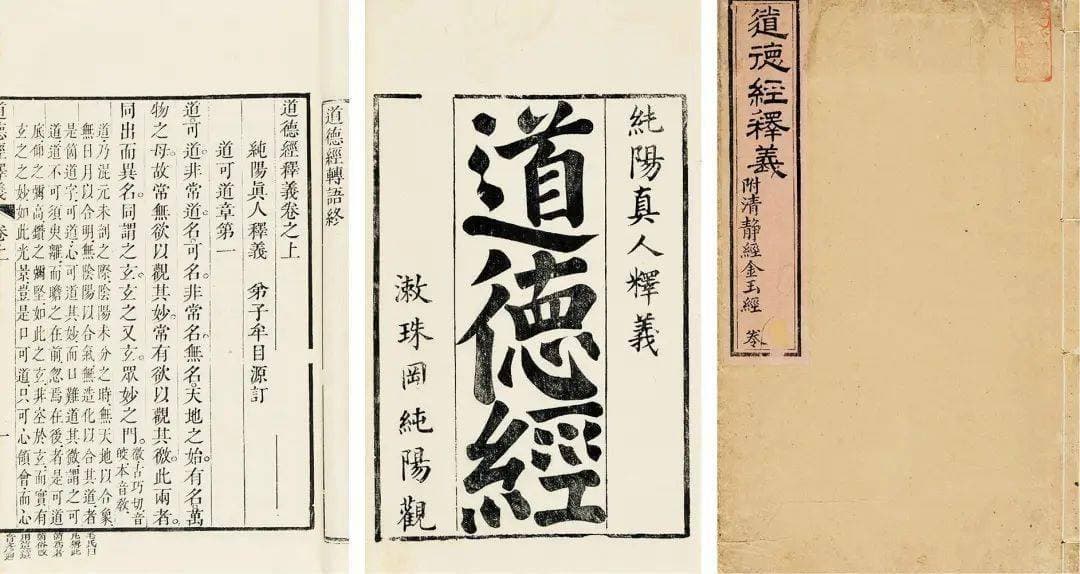 道德經釋義
附清靜經金玉經
卷
純陽真人釋義
道德經
漱珠岡純陽觀
道德經轉語終
道德經釋義卷之上
純陽眞人釋義 弟子牟目源訂
道可道章第一
道可道非常道。名可名非常名無名。天地之始。有名萬
物之母。故常無欲以觀其妙。常有欲以觀其徼。此兩者。
同出而異名。同謂之玄。玄之又玄。眾妙之門。徼古巧切音
皎本音敎
道乃混元未剖之際陰陽未分之時無天地以合象
無日月以合明無陰陽以合氣無造化以合其道者
是箇道字可道心可道其妙而口難道其微謂之可
道道不可須臾離而瞻之在前忽焉在後者是可道
底仰之彌高鑽之彌堅如此之玄非空於玄而實有
玄之之妙如此光景豈是口可道只可心領會而心
道德經釋義 卷上 一